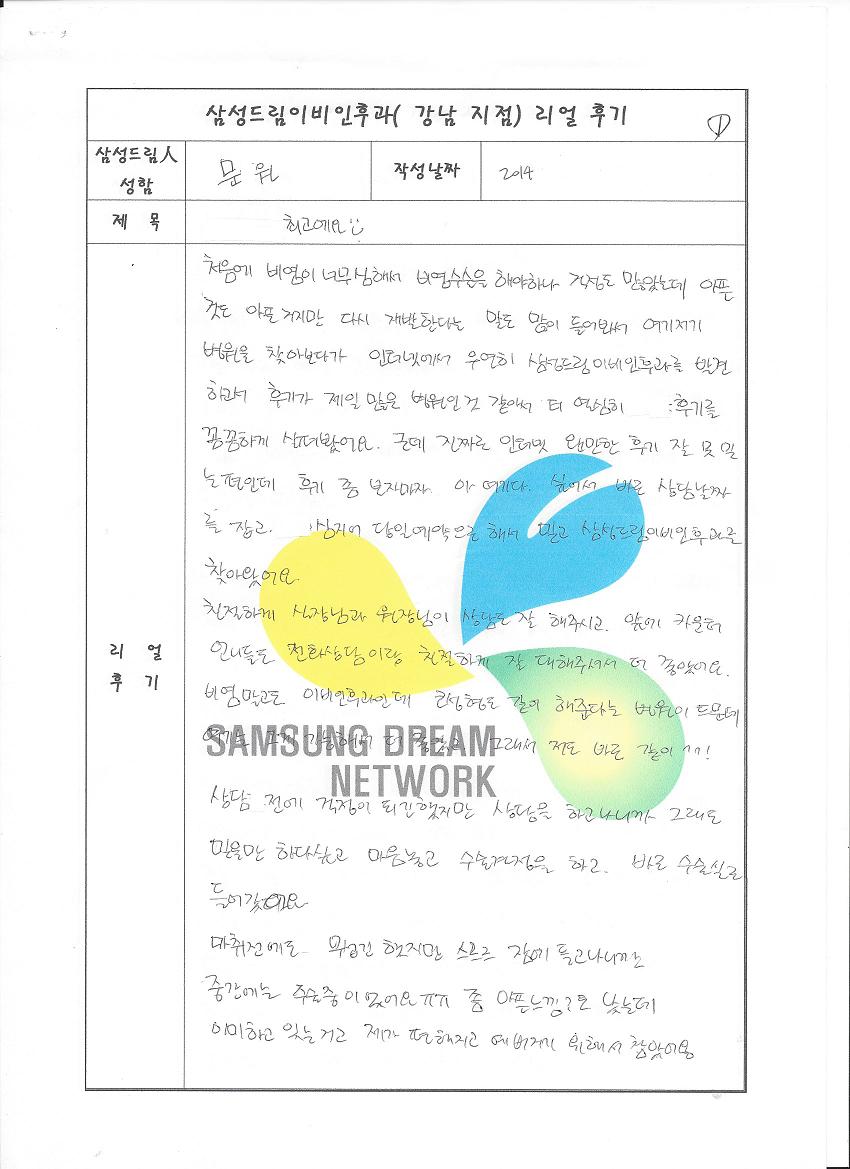 삼성드림이비인후과( 강남 지점) 리얼 후기
①
삼성드림人 성함
문 원
작성날짜
2014
제 목
최고에요
리 얼 후 기
처음에 비염이 너무심해서 비염수술을 해야하나 걱정도 많았는데 아픈
것도 아플 거지만 다시 재발한다는 말도 많이 들어봐서 여기저기
병원을 찾아보다가 인터넷에서 우연히 삼성드림이비인후과를 발견
하고서 후기가 제일 많은 병원인것 같아서 더 열심히 후기를
꼼꼼하게 살펴봤어요. 근데 진짜로 인터넷 웬만한 후기 잘 못 믿
는편인데 후기 좀 보자마자 아 여기다. 싶어서 바로 상담날짜
를 잡고. 심지어 당일예약으로 해서 믿고 삼성드림이비인후과를
찾아왔어요
친절하게 실장님과 원장님이 상담도 잘 해주시고. 앞에 카운터
언니들도 전화상담이랑 친절하게 잘 대해주셔서 더 좋았어요.
비염말고도 이비인후과인데 코성형도 같이 해준다는 병원이 드문데
여기는 그게 가능해서 더 좋았고 그래서 저도 바로 같이 ^^!
SAMSUNG DREAM
NETWORK
상담 전에 걱정이 되긴했지만 상담을 하고나니까 그래도
믿을만 하다싶고 마음놓고 수술결정을 하고. 바로 수술실로
들어갔어요
마취전에도 무섭긴 했지만 스르르 잠에 들고나니까는
중간에는 수술중이었어요ㅠㅠ 좀 아픈느낌?도 났는데
이미하고 있는거고 제가 편해지고 예뻐지기 위해서 참았어용